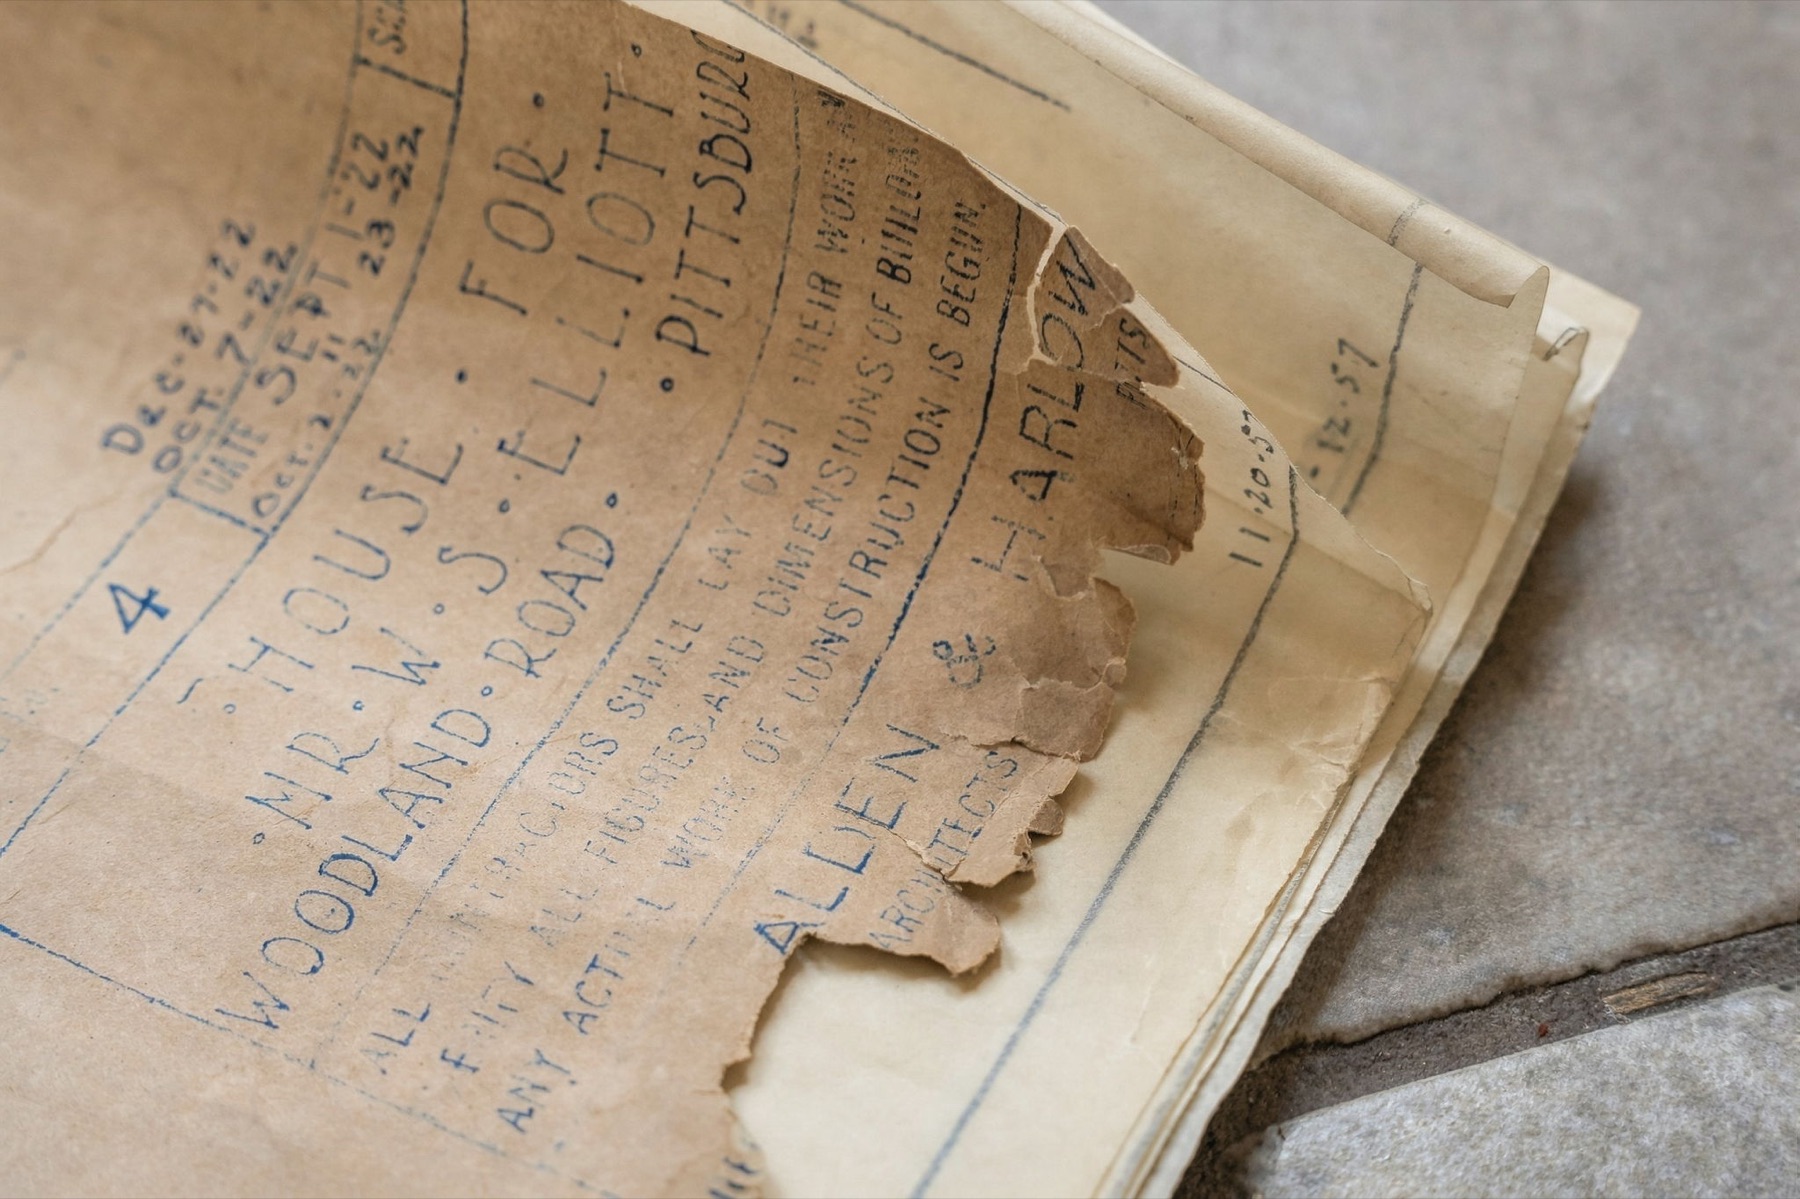 Dec-27-22
OCT. 7-22
DATE SEPT 1-22
Oct. 2-22 " 23-22
4
HOUSE · FOR ·
· MR · W · S · ELLIOTT ·
WOODLAND · ROAD · · PITTSBURG
ALL CONTRACTORS SHALL LAY OUT THEIR WORK AN
ALL FIGURES AND DIMENSIONS OF BUILDING
ANY ACTUAL WORK OF CONSTRUCTION IS BEGUN.
ALDEN & HARLOW
ARCHITECTS PITTS
11·20·57
-12-57